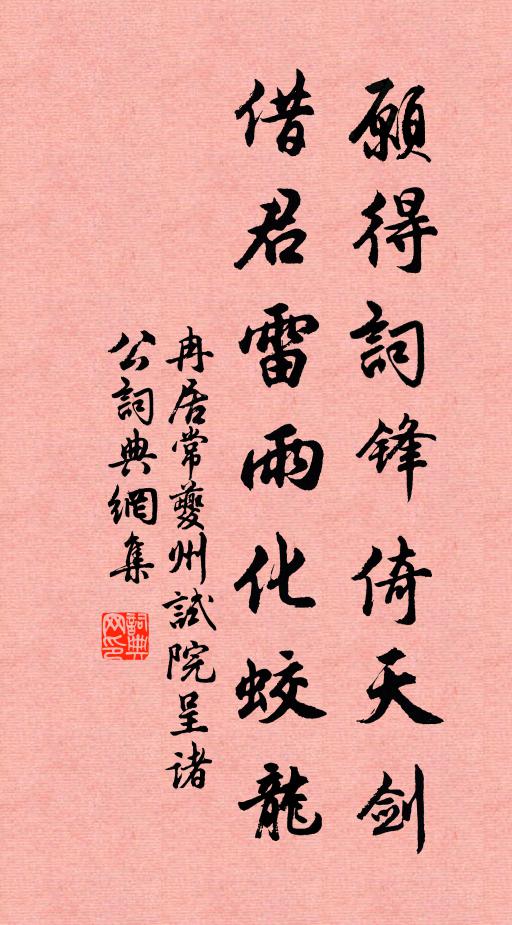 願得詞鋒倚天劍
借君雷雨化蛟龍
冉居常夔州試院呈諸
公詞典網集
詞典
网印